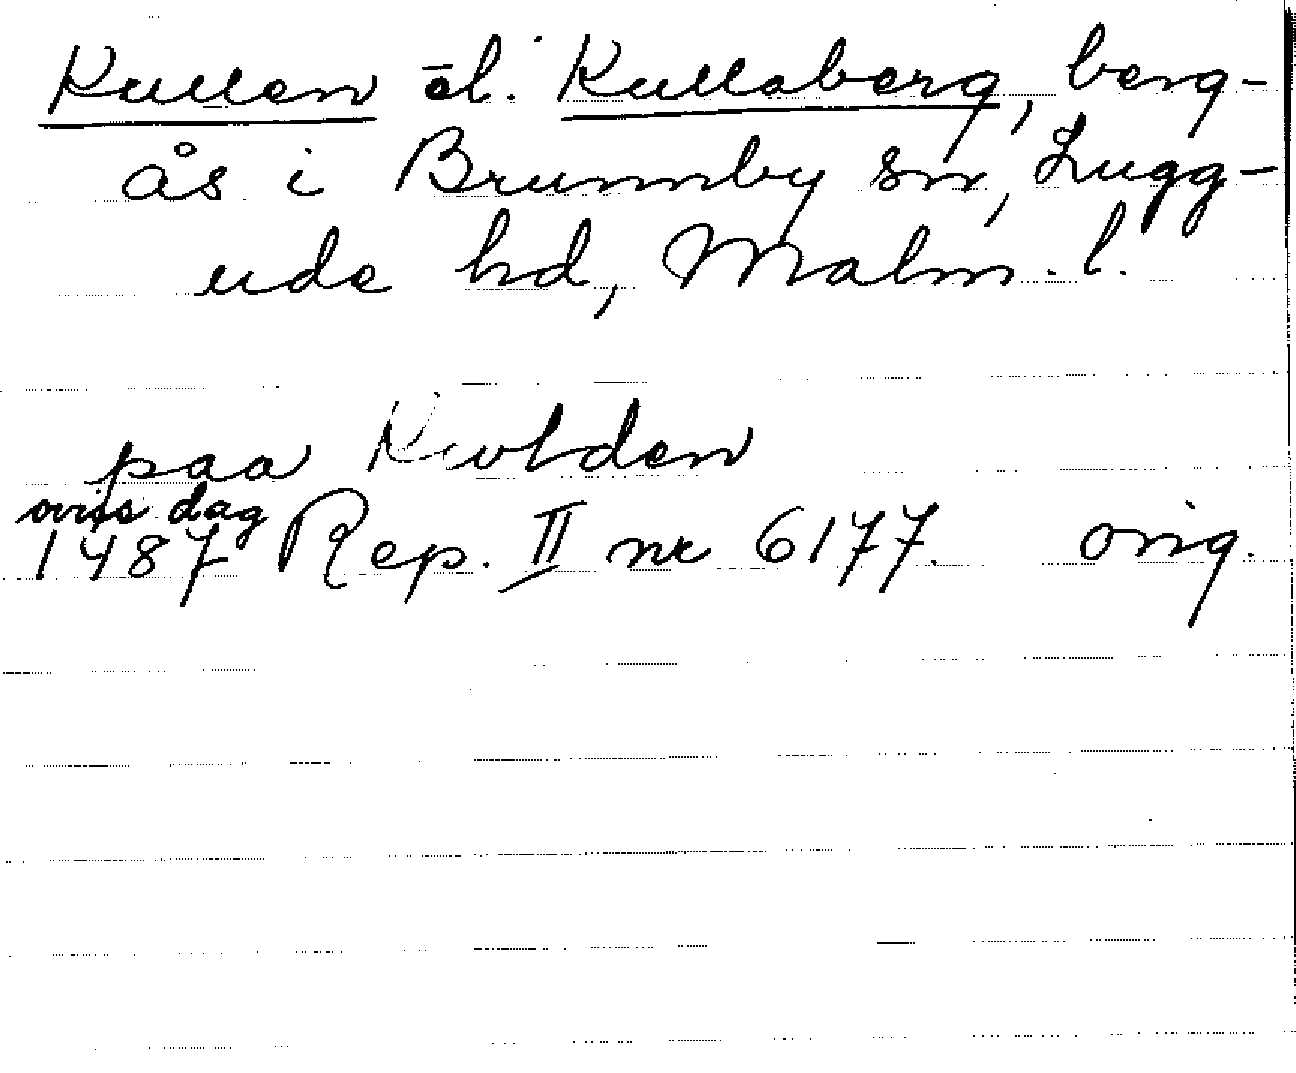 Kullen el. Kullaberg, berg-
ås i Brunnby sn, Lugg-
ude hd, Malm. l.
paa Kwlden
oviss dag
1487 Rep. II nr 6177. orig.